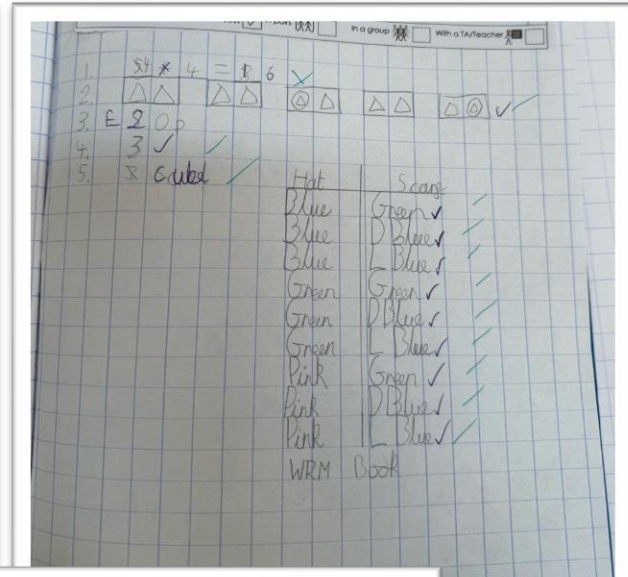 In a group With a TA/Teacher
1. 4 * 4 = 6
2.
3. E 2 0p
4. 3 ✓
5. Cube
Hat Scarf
Blue Green ✓
Blue D Blue ✓
Blue L Blue ✓
Green Green ✓
Green D Blue ✓
Green L Blue ✓
Pink Green ✓
Pink D Blue ✓
Pink L Blue ✓
WRM Book